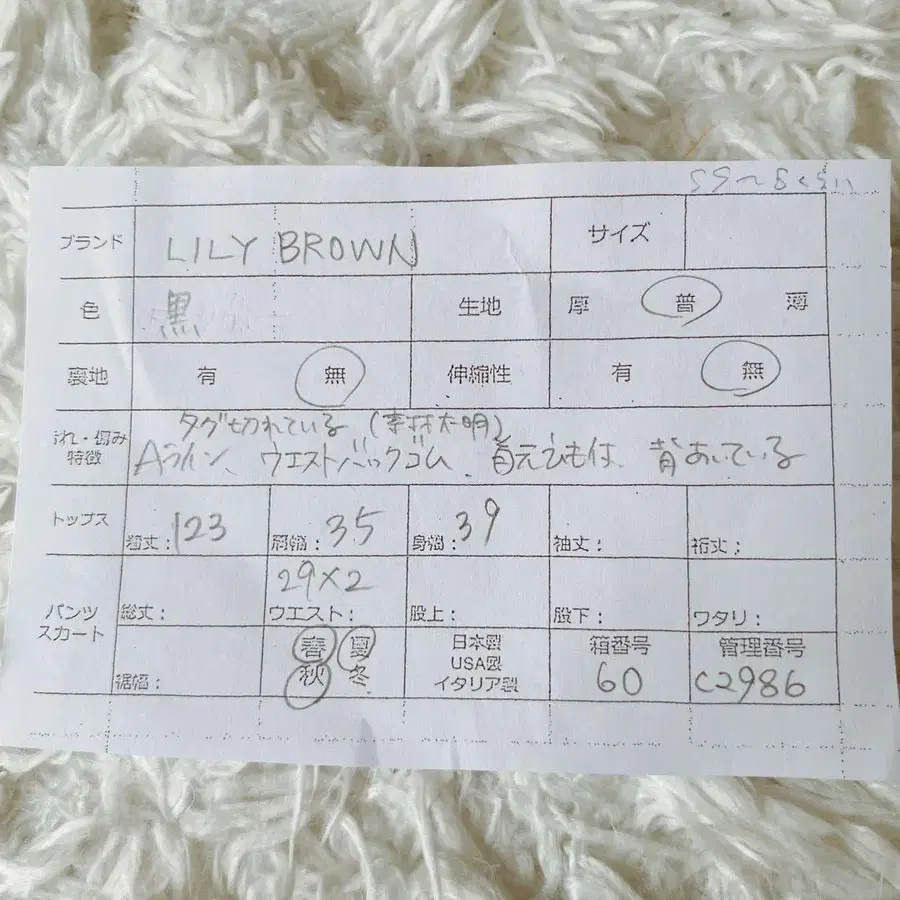 S9～Sくらい
ブランド LILY BROWN サイズ
色 黒 生地 厚 普 薄
裏地 有 無 伸縮性 有 無
汚れ・傷み
特徴
タグ切れている(素材不明)
Aライン、ウエストバックゴム、首元ひも付、背あいている
トップス 着丈:123 肩幅:35 身幅:39 袖丈: 裄丈:
パンツ
スカート
総丈: ウエスト:29×2 股上: 股下: ワタリ:
裾幅: 春 夏 秋 冬
日本製
USA製
イタリア製
箱番号
60
管理番号
C2986